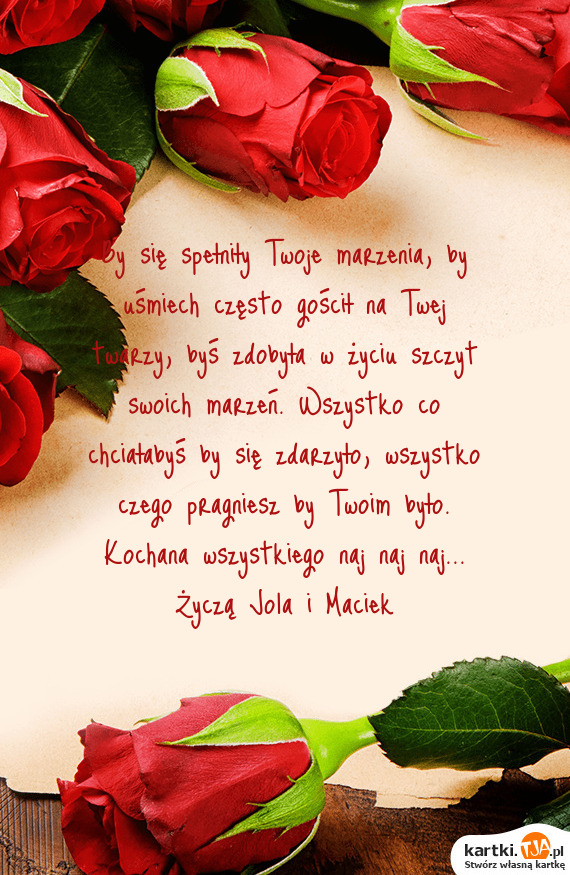 By się spełniły Twoje marzenia, by
uśmiech często gościł na Twej
twarzy, byś zdobyła w życiu szczyt
swoich marzeń. Wszystko co
chciałabyś by się zdarzyło, wszystko
czego pragniesz by Twoim było.
Kochana wszystkiego naj naj naj...
Życzą Jola i Maciek
kartki.TJA.pl
Stwórz własną kartkę